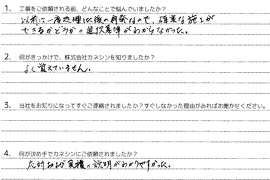 1. 工事をご依頼される前、どんなことで悩んでいましたか？
以前に一度処理した後の再発なので、確実な施工が
できるかどうかの選択基準がわからなかった。
2. 何がきっかけで、株式会社カネシンを知りましたか？
よく覚えていません。
3. 当社をお知りになってすぐご連絡されましたか？すぐしなかった理由があればお聞かせください。
4. 何が決め手でカネシンにご依頼されましたか？
の説明がわかりやすかった。